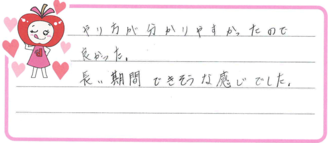 やり方が分かりやすかったので
良かった。
長い期間できそうな感じでした。